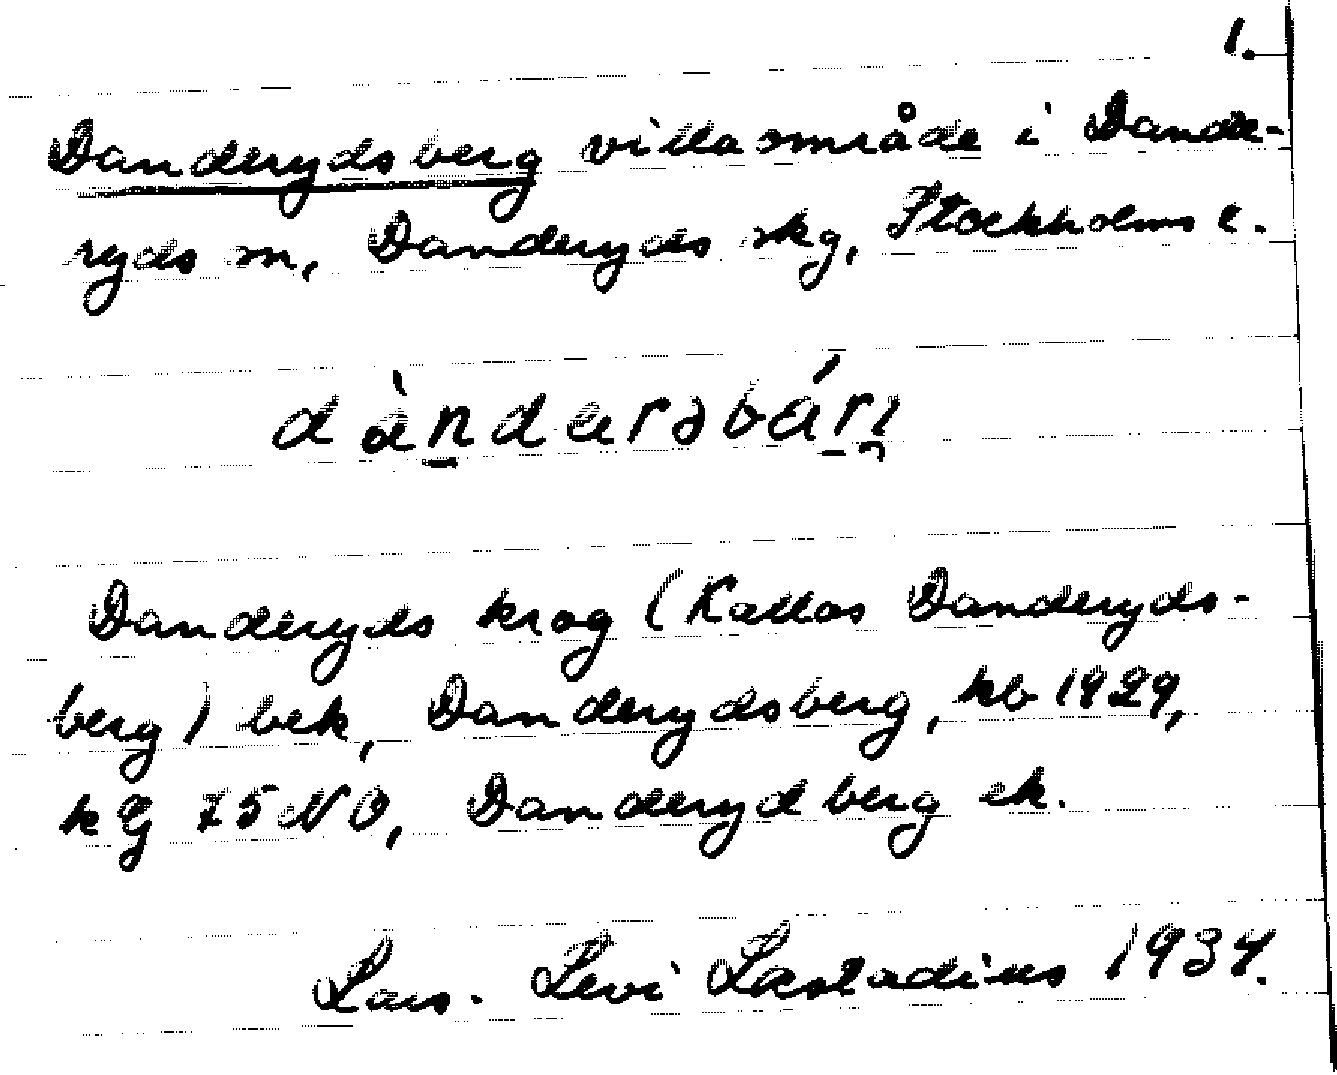 1.
Danderydsberg villaområde i Dande-
ryds sn, Danderyds skg, Stockholms l.
dànderəbárj
Danderyds krog (Kallas Danderyds-
berg) bek, Danderydsberg, kb 1929,
kg 75 NO, Danderydberg ek.
Lars-Levi Læstadius 1934.